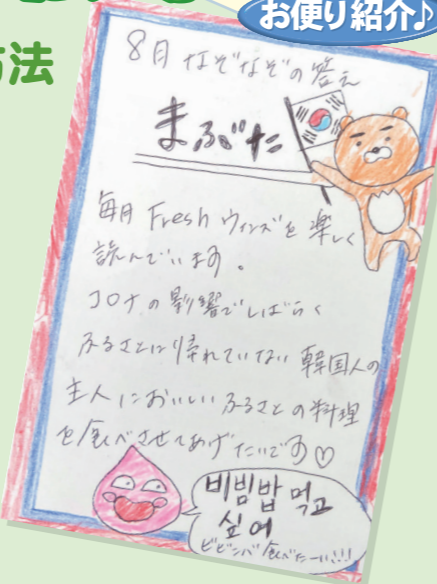 お便り紹介♪
方法
8月 なぞなぞの答え
まぶた
毎月 Fresh ウィンズを楽しく
読んでいます。
コロナの影響でしばらく
ふるさとに帰れていない 韓国人の
主人においしいふるさとの料理
を食べさせてあげたいです♡
비빔밥 먹고
싶어
ビビンバ食べたーい!!!